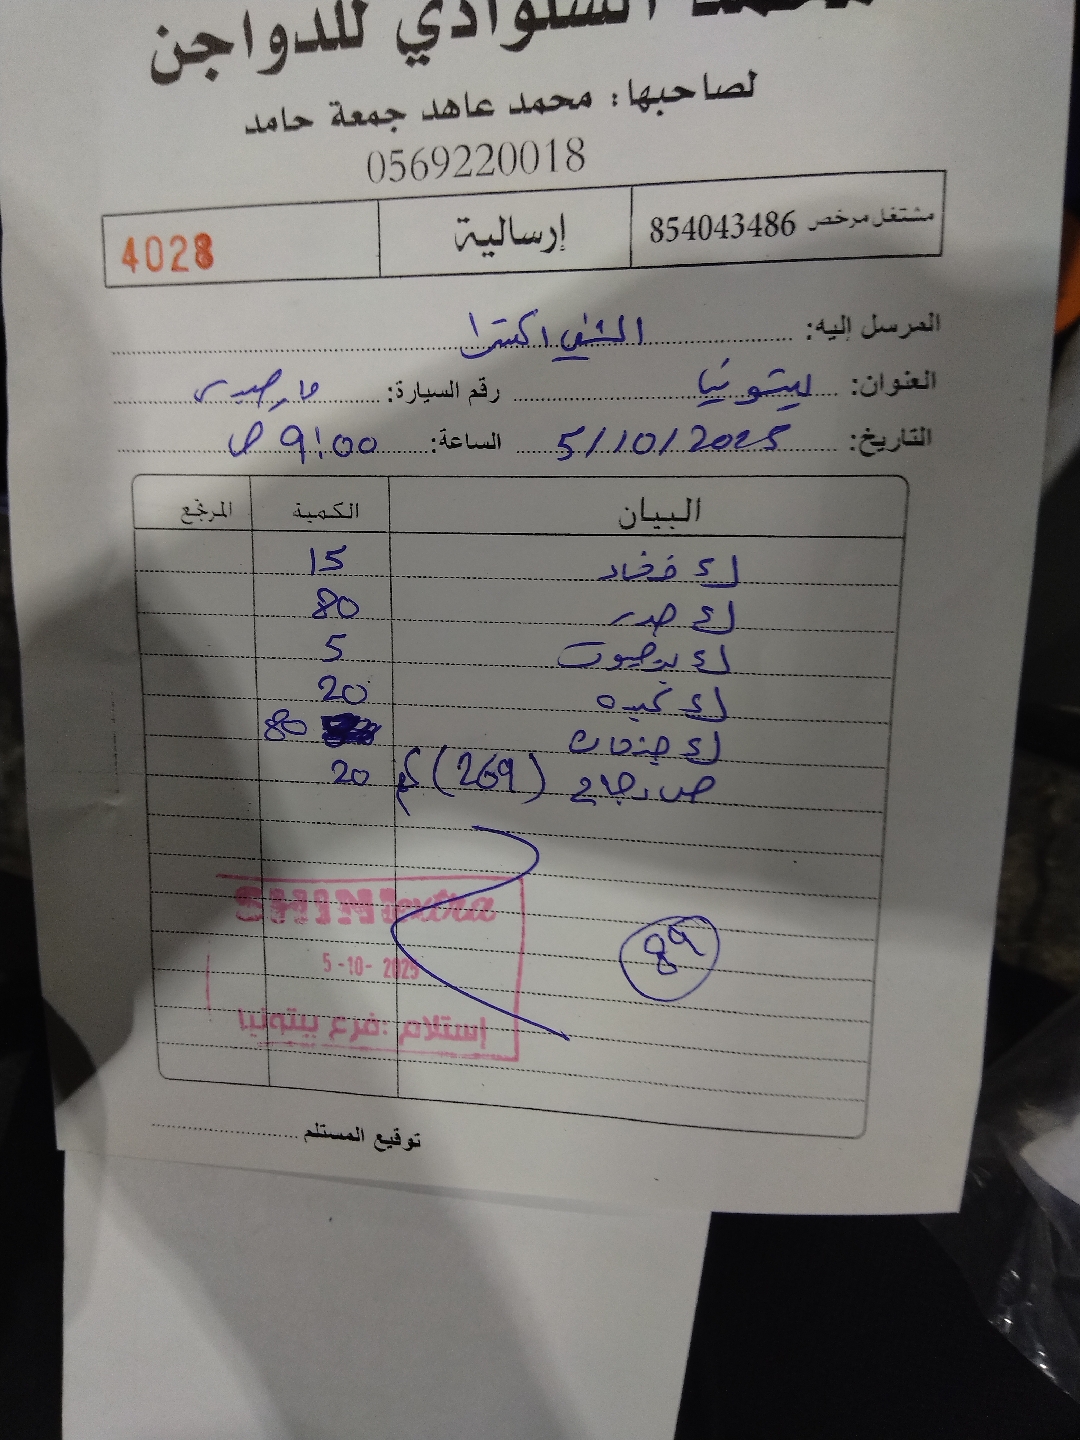 محمد السلوادي للدواجن
لصاحبها: محمد عاهد جمعة حامد
0569220018
مشتغل مرخص 854043486
إرسالية
4028
المرسل إليه: الشني اكسترا
العنوان: بيتونيا رقم السيارة:
التاريخ: 5/10/2025 الساعة: 9:00 ص
البيان الكمية المرتجع
ك فخاد 15
ك صدر 80
ك 5
ك كبده 20
ك جنحات 80
ص دجاج (269) كم 20
89
SHINI extra
5-10-2025
إستلام :فرع بيتونيا
توقيع المستلم